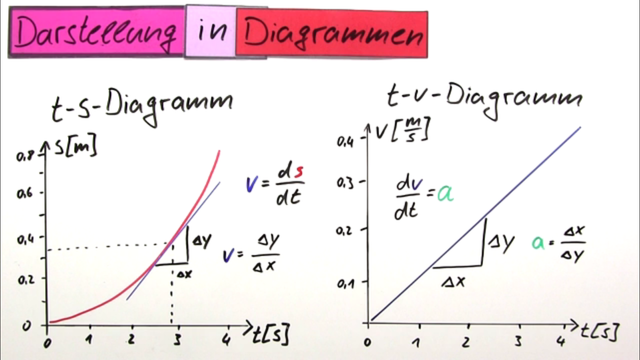 Darstellung in Diagrammen
t-s-Diagramm
s[m]
0,8
0,6
0,4
0,2
0
0
1
2
3
4
t[s]
Δy
Δx
v = ds/dt
v = Δy/Δx
t-v-Diagramm
v[m/s]
0,4
0,3
0,2
0,1
0
1
2
3
4
t[s]
dv/dt = a
Δy
Δx
a = Δx/Δy